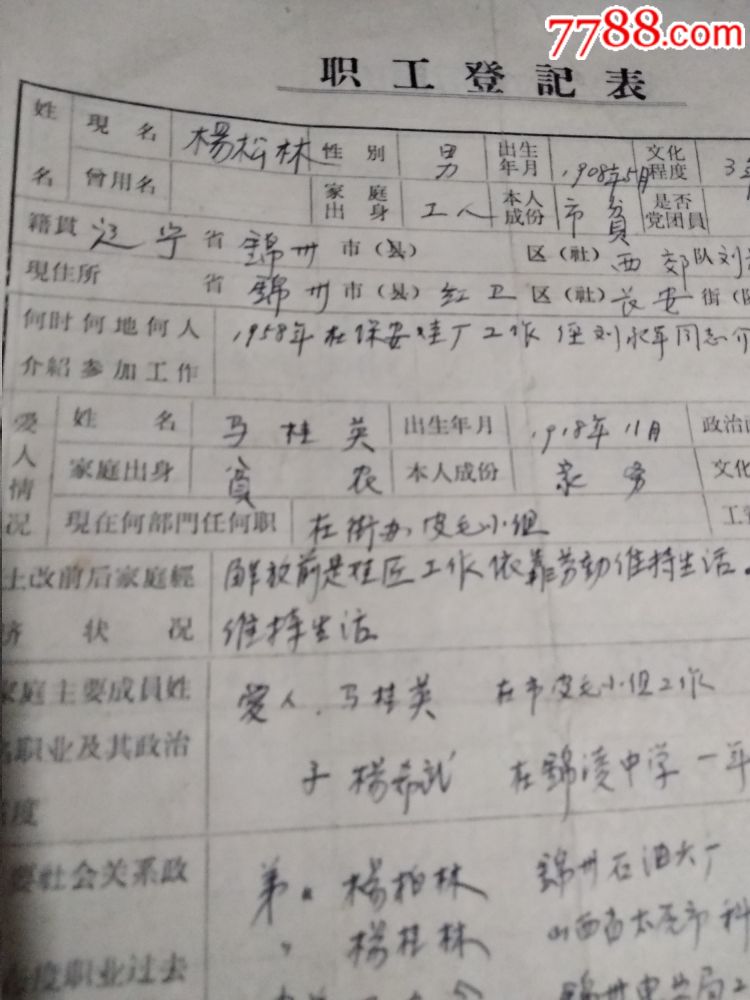 7788.com
职工登記表
姓名 現名 楊松林 性別 男 出生年月 1908年5月 文化程度 3
曾用名 家庭出身 工人 本人成份 市貧 是否党团員
籍貫 辽宁省錦州市(县) 区(社) 西郊队刘
現住所 省錦州市(县)红卫区(社)长安街
何时何地何人介紹参加工作 1958年在保安 厂工作 经刘永年同志介
爱人情况 姓名 马桂英 出生年月 1918年11月 政治
家庭出身 貧农 本人成份 家务 文化
現在何部門任何职 在街办皮毛小组
土改前后家庭經济状况 解放前是 匠工作依靠劳动维持生活。
维持生活
家庭主要成員姓名职业及其政治 度 爱人.马桂英 在市皮毛小组工作
子 楊希武 在錦凌中学一年
要社会关系政 弟〃 楊柏林 錦州石油六厂
〃 楊桂林 山西省太原市科
度职业过去